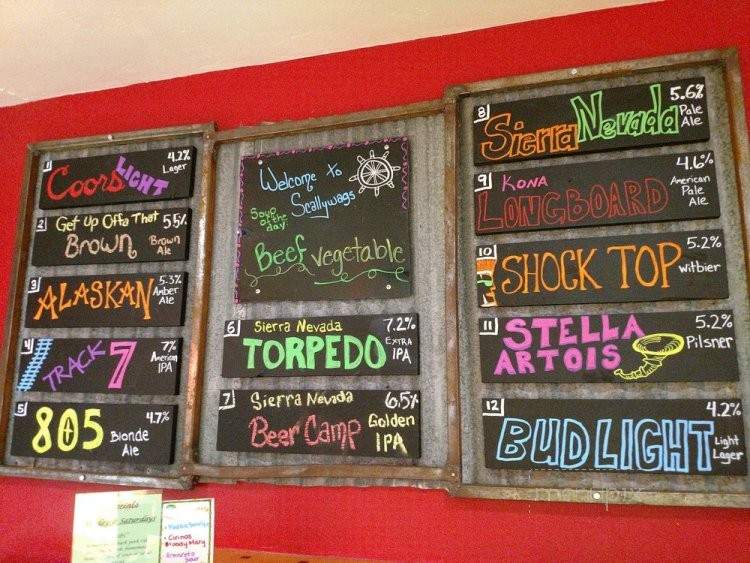 1
Coors LIGHT
4.2%
Lager
2
Get Up Offa That
Brown
5.5%
Brown
Ale
3
ALASKAN
5.3%
Amber
Ale
4
TRACK 7
7%
American
IPA
5
805
4.7%
Blonde
Ale
Welcome To
Scallywags
Soup
of the
day:
Beef vegetable
6
Sierra Nevada
TORPEDO
7.2%
EXTRA
IPA
7
Sierra Nevada
Beer Camp
6.5%
Golden
IPA
8
Sierra Nevada
5.6%
Pale
Ale
9
KONA
LONGBOARD
4.6%
American
Pale
Ale
10
SHOCK TOP
5.2%
witbier
11
STELLA
ARTOIS
5.2%
Pilsner
12
BUD LIGHT
4.2%
Light
Lager
Saturdays
Bloody Mary